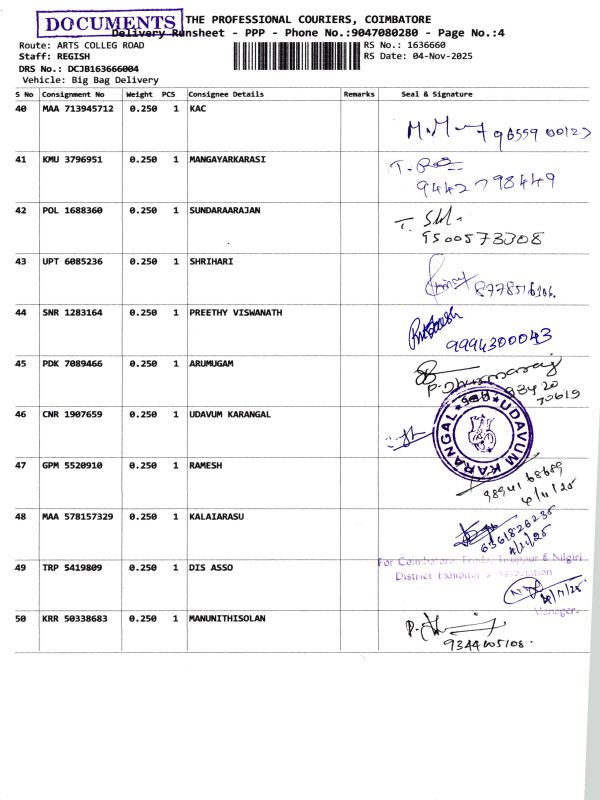 DOCUMENTS THE PROFESSIONAL COURIERS, COIMBATORE
Delivery Runsheet - PPP - Phone No.:9047080280 - Page No.:4
Route: ARTS COLLEG ROAD RS No.: 1636660
Staff: REGISH RS Date: 04-Nov-2025
DRS No.: DCJB163666004
Vehicle: Big Bag Delivery
S No Consignment No Weight PCS Consignee Details Remarks Seal & Signature
40 MAA 713945712 0.250 1 KAC
41 KMU 3796951 0.250 1 MANGAYARKARASI
9442798449
42 POL 1688360 0.250 1 SUNDARAARAJAN
9500573308
43 UPT 6085236 0.250 1 SHRIHARI
44 SNR 1283164 0.250 1 PREETHY VISWANATH
9994300043
45 PDK 7089466 0.250 1 ARUMUGAM
P. Dhurmaraj
93420
70619
46 CNR 1907659 0.250 1 UDAVUM KARANGAL
UDAVUM KARANGAL
47 GPM 5520910 0.250 1 RAMESH
9894168689
4/11/25
48 MAA 578157329 0.250 1 KALAIARASU
6361826235
4/11/25
49 TRP 5419809 0.250 1 DIS ASSO
For Coimbatore, Erode, Tiruppur & Nilgiri
District Exhibitor's Association
4/11/25
Manager.
50 KRR 50338683 0.250 1 MANUNITHISOLAN
9344605108.